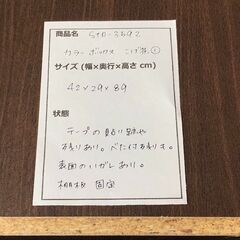 商品名 STD-3692
カラーボックス こげ茶①
サイズ (幅×奥行×高さ cm)
42×29×89
状態
テープの貼り跡や
剥りあり。べた付あります。
表面のハガレあり。
棚板 固定